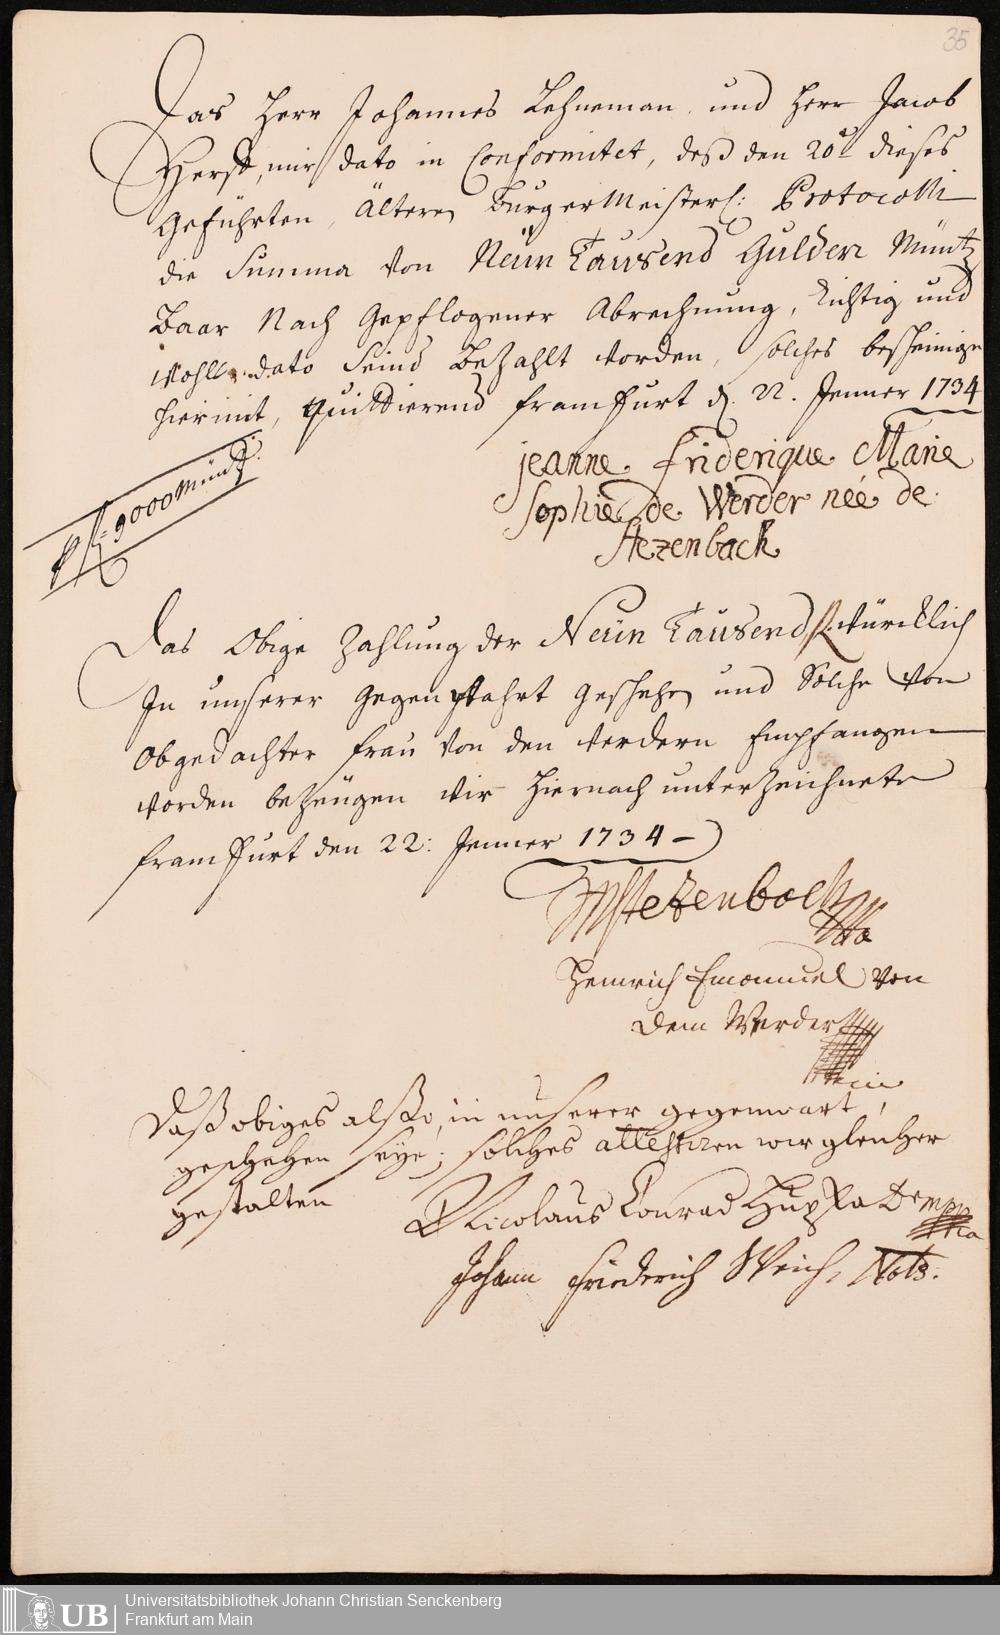 35
Das Herr Johannes Lehneman und Herr Jacob
Herst, mir dato in Conformitet, deß den 20t dieses
geführten, Ältern BurgerMeisterl: Protocolli
die Summa von Neün Tausend Gulden Müntz
Baar Nach gepflogener Abrechnung, Richtig und
Wohl dato seind bezahlt worden, solches bescheinige
hiermit, quittierend franckfurt d. 22. Jenner 1734
jeanne friderique Marie
Sophie de Werder neé de
Stezenbach
fl: 9000 Müntz:
Das Obige Zahlung der Neün Tausend fl. würcklich
In unserer gegenwahrt geschehen und Solche von
Obgedachter frau von den Werdern Empfangen
worden bezeugen wir Hiernach unterzeichnete
franckfurt den 22: Jenner 1734
Stezenbach
Heinrich Emanuel von
dem Werder
Daß obiges alßo, in unserer gegenwart,
geschehen seye; solches attestiren wir gleicher
gestalten
Nicolaus Conrad Hupka
Johann Friederich Weich, Nots.
Universitätsbibliothek Johann Christian Senckenberg
Frankfurt am Main
UB